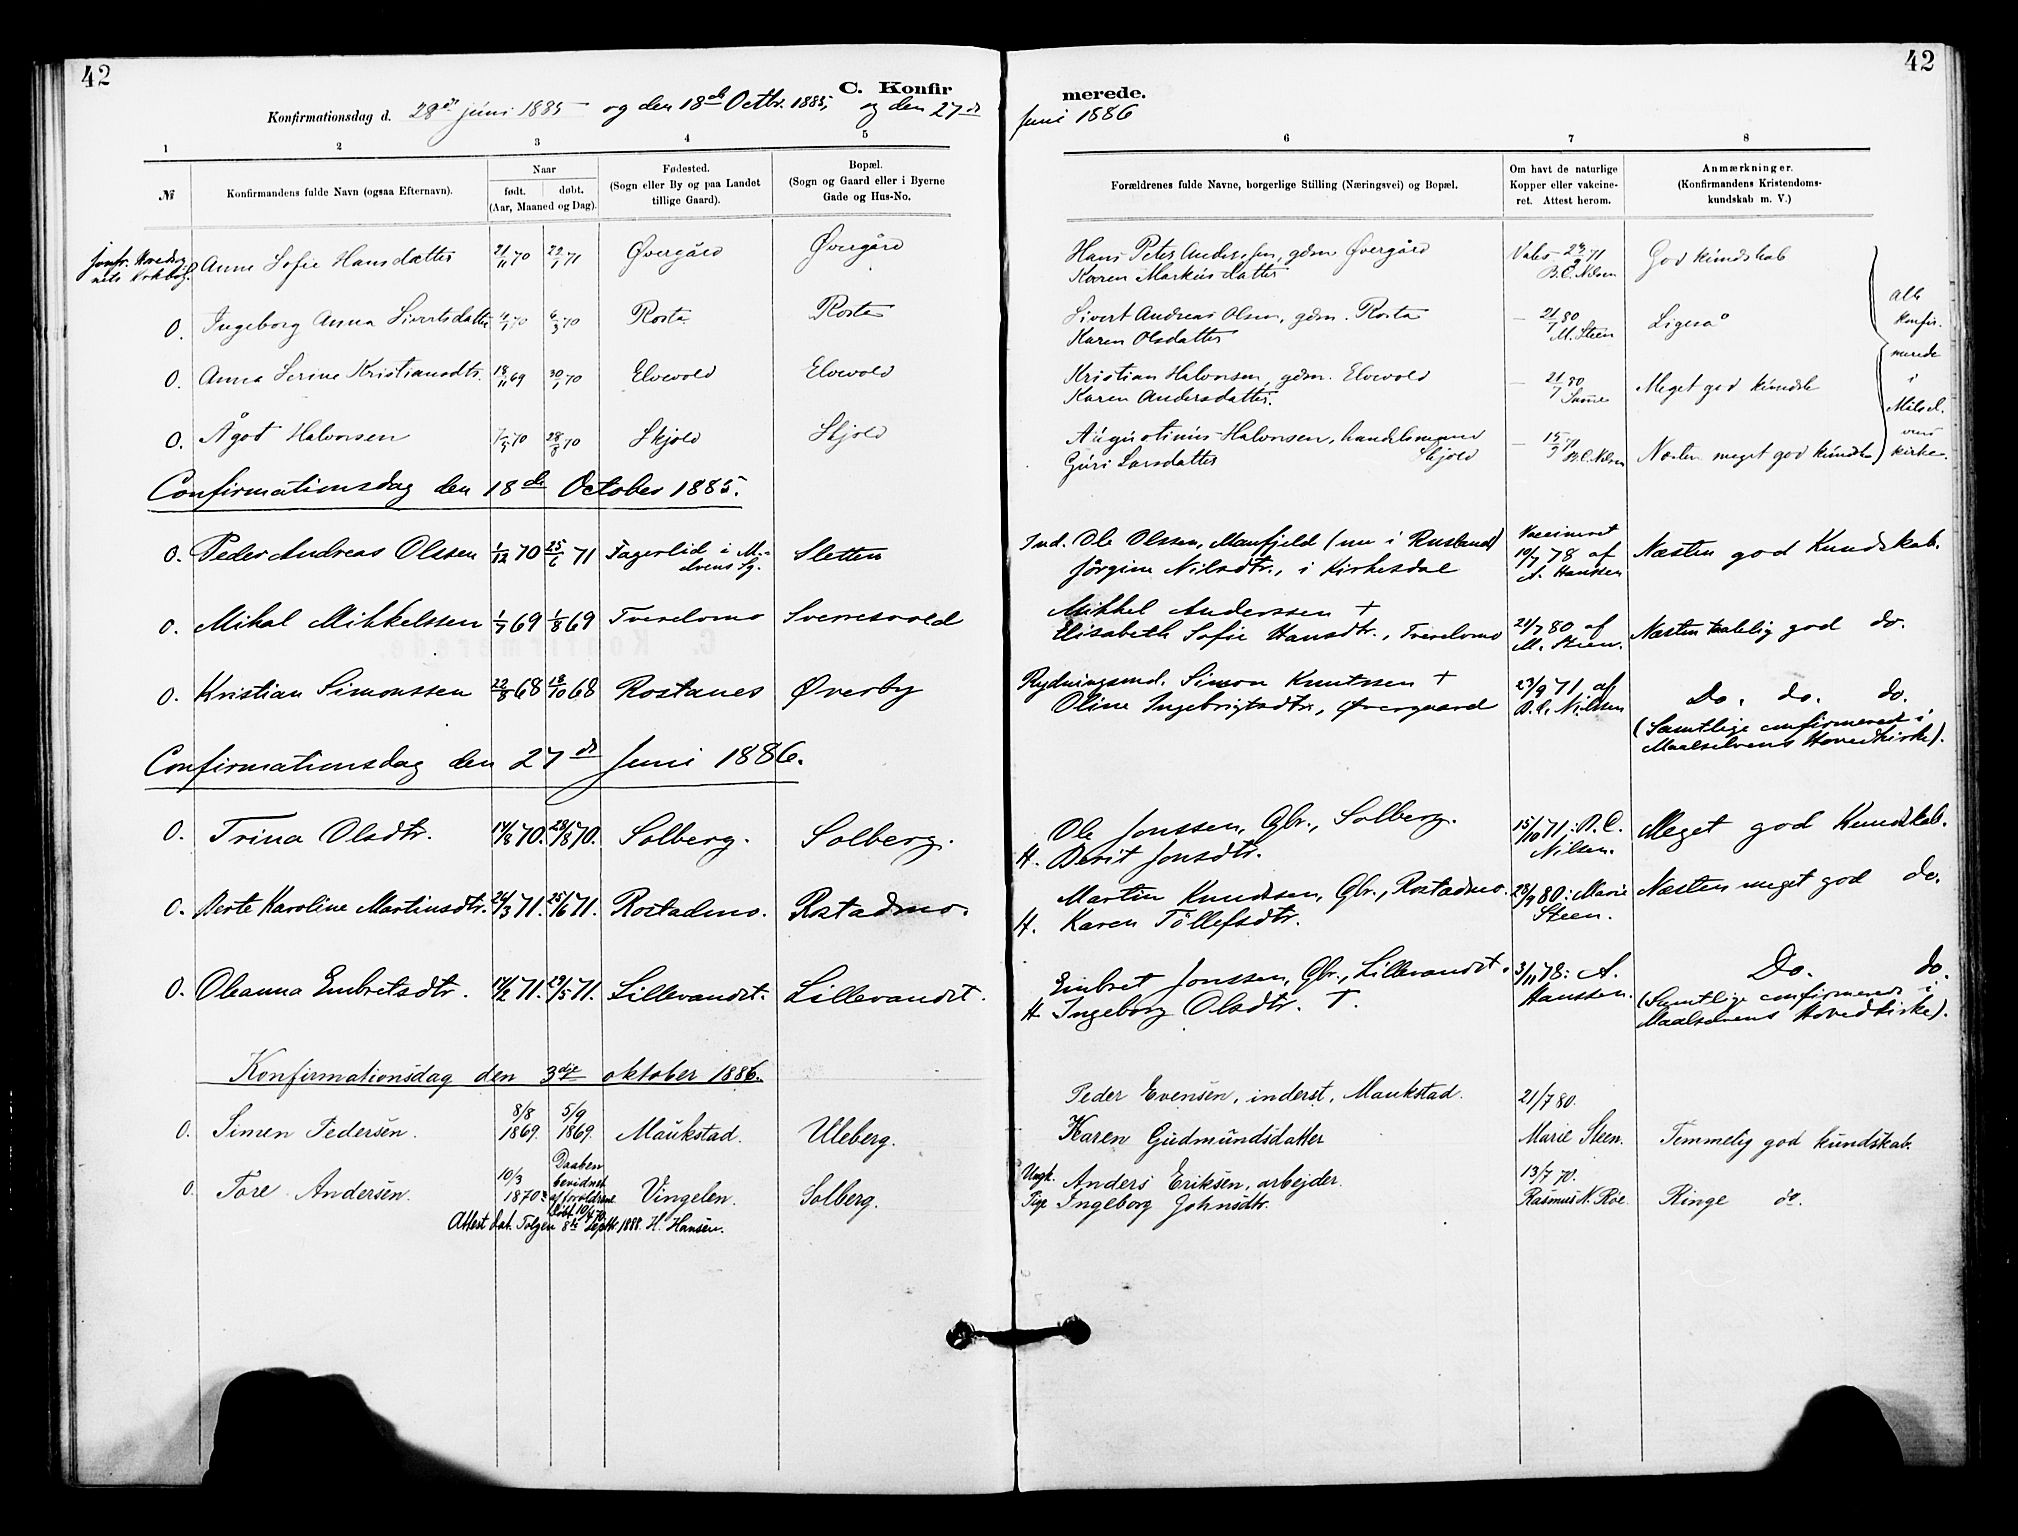 42
42
C. Konfir
merede.
Konfirmationsdag d. 28de juni 1885 og den 18de Octbr. 1885, og den 27de
Juni 1886
1 2 3 4 5 6 7 8
№
Konfirmandens fulde Navn (ogsaa Efternavn).
Naar
født. døbt.
(Aar, Maaned og Dag).
Fødested.
(Sogn eller By og paa Landet
tillige Gaard).
Bopæl.
(Sogn og Gaard eller i Byerne
Gade og Hus-No.
Forældrenes fulde Navne, borgerlige Stilling (Næringsvei) og Bopæl.
Om havt de naturlige
Kopper eller vakcine-
ret. Attest herom.
Anmærkninger.
(Konfirmandens Kristendoms-
kundskab m. V.)
Anne Sofie Hansdatter 21/11 70 22/1 71 Øvergård Øvergård Hans Peter Anderssen, gdm Øvergård God kundskab
Karen Markusdatter B.C. Nilsen
O. Ingeborg Anna Sivertsdatter 6/3 70 Rosta Rosta Sivert Andreas Olsen, gdm. Rosta – 21/7 80 Ligeså
Karen Olsdatter M. Steen
O. Anna Serine Kristiansdtr. 18/11 69 30/1 70 Elvevold Elvevold Kristian Halvorsen, gdm. Elvevold – 21/7 80 Meget god kundsk
Karen Andersdatter. Samme
O. Ågot Halvorsen 28/8 70 Skjold Skjold Augustinus Halvorsen, handelsmand – 15/9 71 Næsten meget god kundsk
Guri Larsdatter Skjold B.C. Nilsen
alle
konfir-
merede
i
Målsel-
vens
kirke.
Confirmationsdag den 18de October 1885.
O. Peder Andreas Olssen 1/12 70 25/6 71 Fagerlid i M.- Sletten Ind. Ole Olssen, Maufjeld (nu i Rusland) Vaccineret
elvens Sg. Jørgine Nilsdtr., i Kirkesdal 19/7 78 af Næsten god Kundskab.
A. Hanssen
O. Mikal Mikkelssen 1/7 69 1/8 69 Tverelvmo Sverresvold Mikkel Anderssen +
Elisabeth Sofie Hansdtr., Tverelvmo 21/7 80 af Næsten taalelig god do.
M. Steen.
O. Kristian Simonssen 22/8 68 18/10 68 Rostanes Øverby Rydningsmd. Simon Knutssen + 23/9 71 af Do. do. do.
Oline Ingebrigtsdtr., Øvergaard B.C. Nilssen
(Samtlige confirmeret i
Maalselvens Hovedkirke).
Confirmationsdag den 27de Juni 1886.
O. Trina Olsdtr. 14/8 70. 28/8 70. Solberg. Solberg. Ole Jonssen, Gbr., Solberg. 15/10 71: B.C. Meget god Kundskab.
H. Berit Jonsdtr. Nilsen.
O. Berte Karoline Martinsdtr. 26/3 71. 25/6 71. Rostadmo. Rostadmo. Martin Knudsen, Gbr., Rostadmo. 28/9 80: Marie Næsten meget god do.
H. Karen Tollefsdtr. Steen.
O. Oleanna Embretsdtr. 14/2 71. 29/5 71. Lillevandet. Lillevandet. Embret Jonssen, Gbr., Lillevandet. 3/11 78: A. Do. do.
H. Ingeborg Olsdtr. †. Hanssen. (Samtlige confirmerede i
Maalselvens Hovedkirke).
Konfirmationsdag den 3die oktober 1886.
O. Simen Pedersen. 8/8 1869. 5/9 1869. Maukstad. Uleberg. Peder Evensen, inderst, Maukstad. 21/7 80.
Karen Gudmundsdatter Marie Steen. Temmelig god kundskab.
O. Tore Andersen. 10/3 1870. Daaben
bevidnet
af forældrene
døbt 10/4 70.
Vingelen. Solberg. Ungk. Anders Eriksen, arbejder. 13/7 70.
Pige Ingeborg Johnsdtr. Rasmus N. Røe. Ringe do.
Attest dat. Tolgen 8de Septbr 1888. H. Hansen.